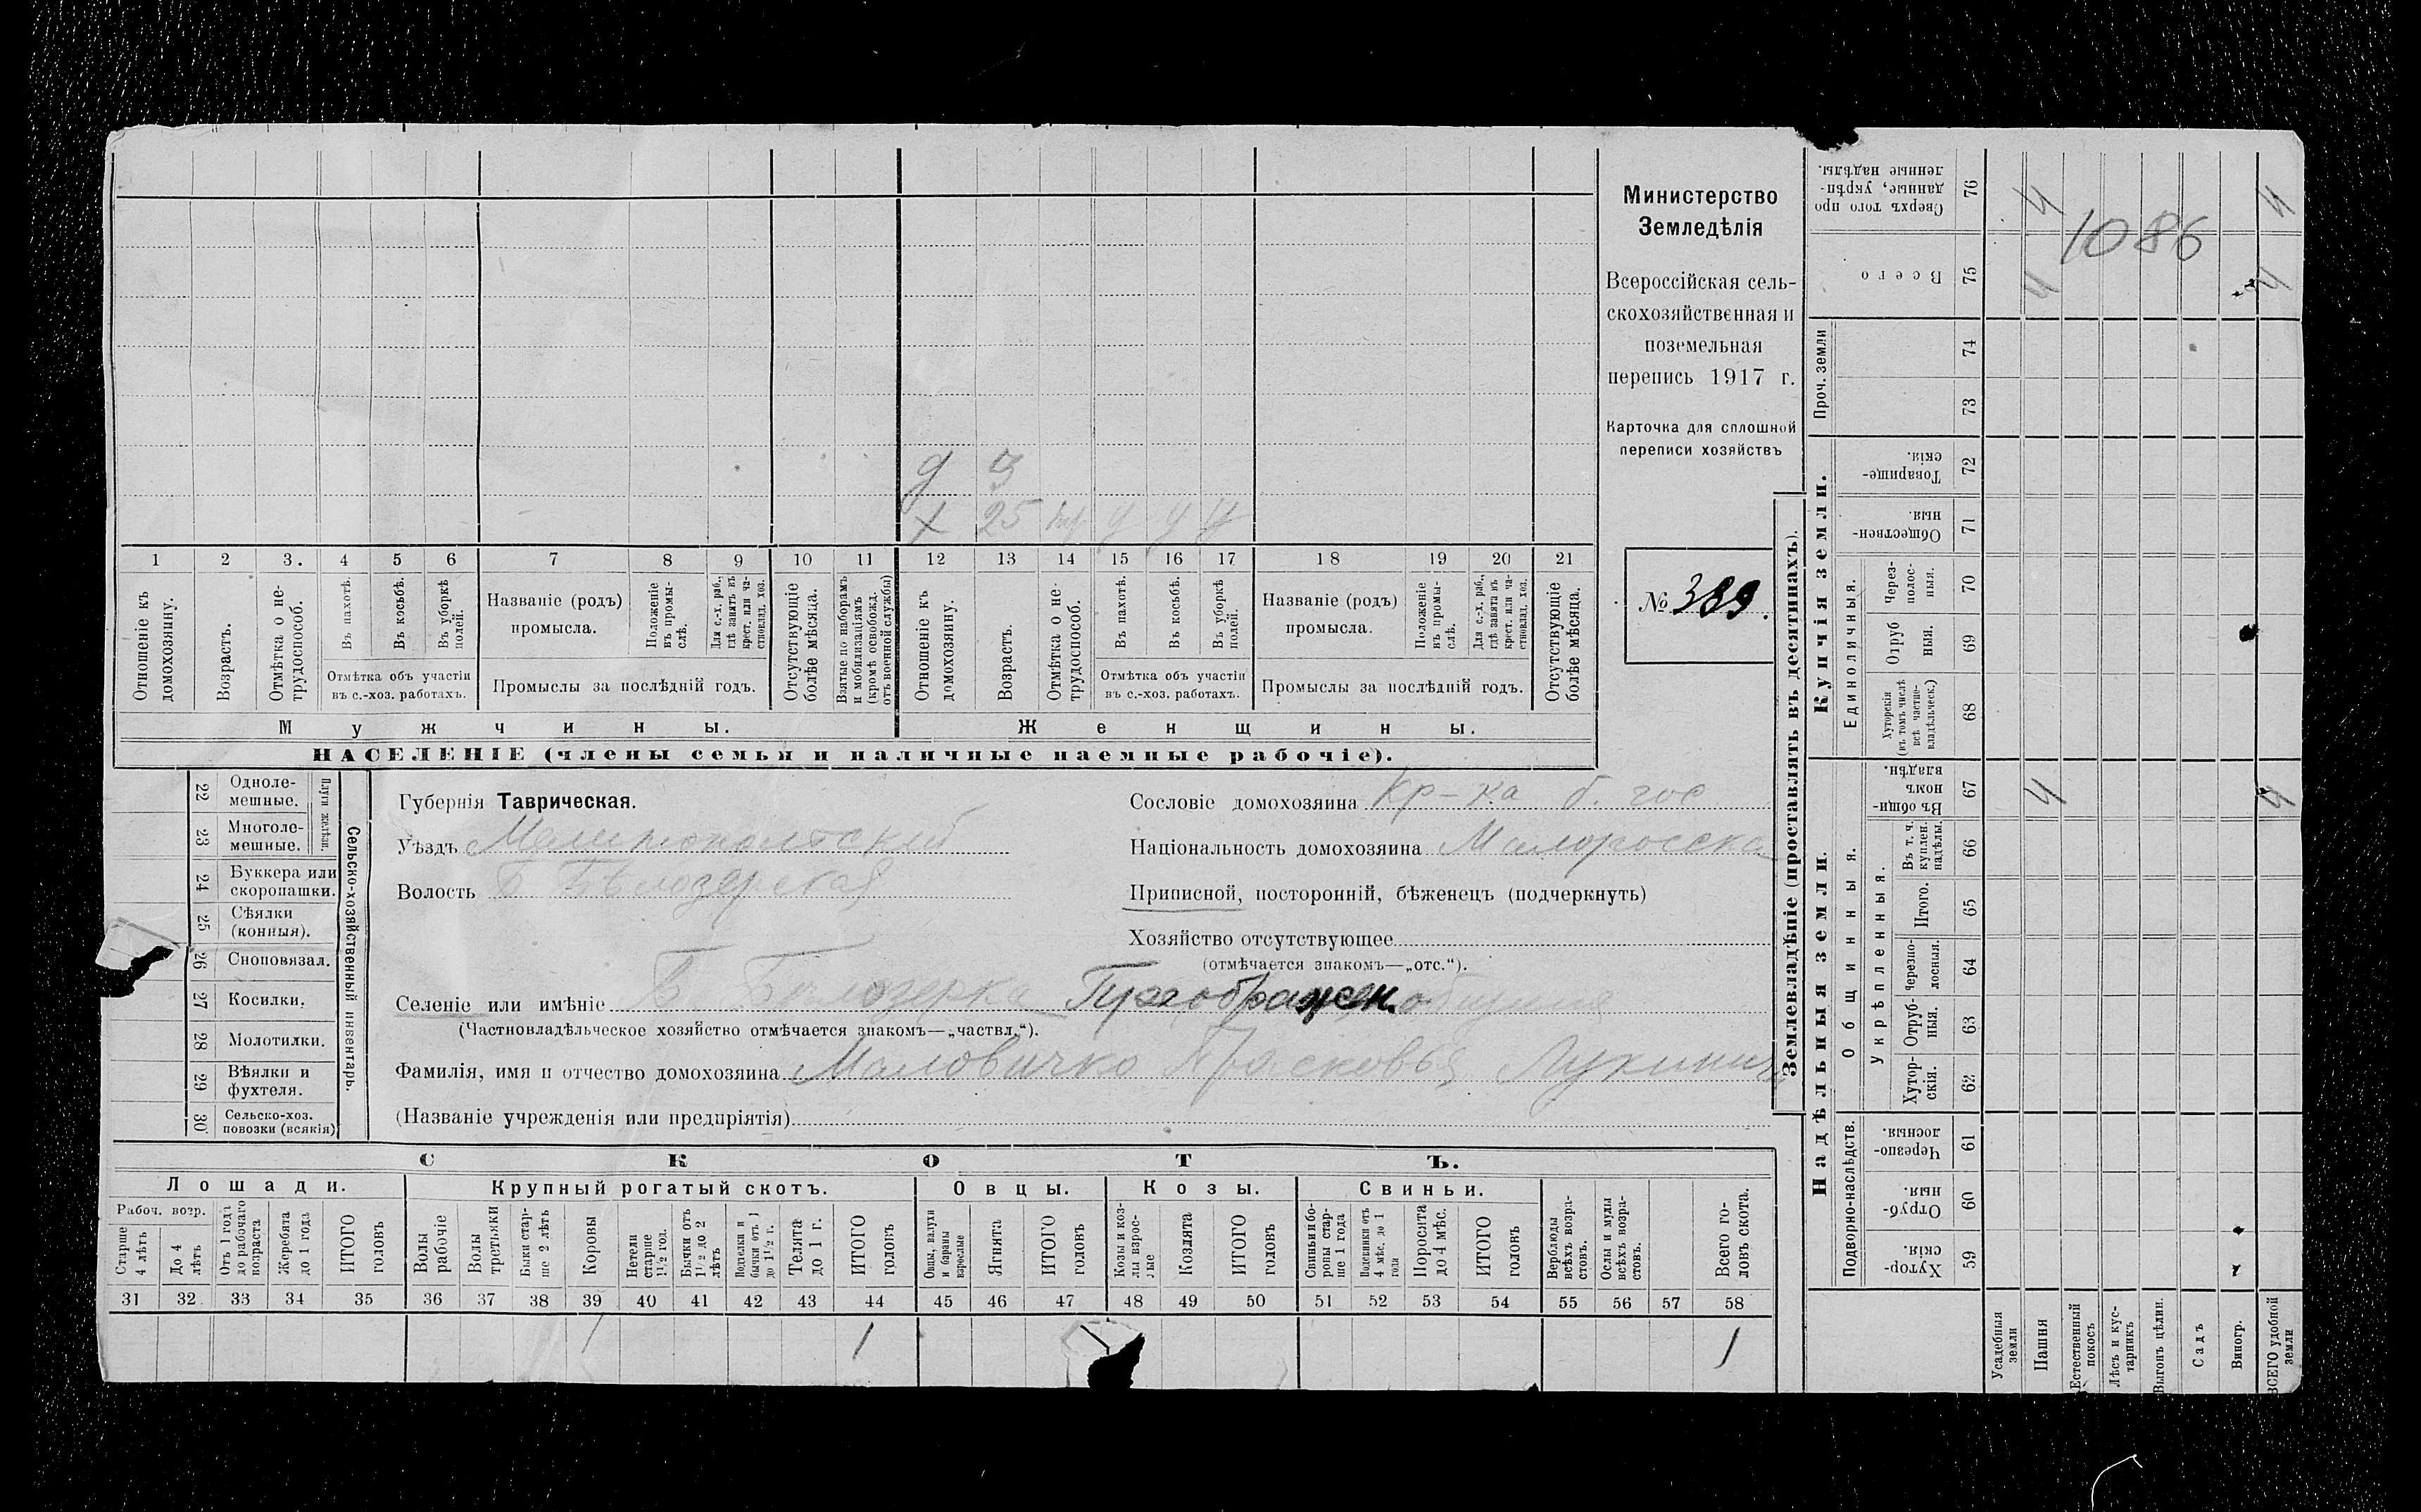 Министерство
Земледѣлія
Всероссійская сель-
скохозяйственная и
поземельная
перепись 1917 г.
Карточка для сплошной
переписи хозяйствъ
№ 389.
д 3
х 25 у у у
1 2 3. 4 5 6 7 8 9 10 11 12 13 14 15 16 17 18 19 20 21
Отношеніе къ домохозяину.
Возрастъ.
Отмѣтка о не-трудоспособ.
Въ пахотѣ.
Въ косьбѣ.
Въ уборкѣ полей.
Отмѣтка объ участіи въ с.-хоз. работахъ.
Названіе (родъ) промысла.
Положеніе въ промы-слѣ.
Для с.-х. раб., гдѣ занятъ въ крест. или ча-стновлад. хоз.
Промыслы за послѣдній годъ.
Отсутствующіе болѣе мѣсяца.
Взятые по наборамъ и мобилизаціямъ (кромѣ освобожд. отъ военной службы)
Отношеніе къ домохозяину.
Возрастъ.
Отмѣтка о не-трудоспособ.
Въ пахотѣ.
Въ косьбѣ.
Въ уборкѣ полей.
Отмѣтка объ участіи въ с.-хоз. работахъ.
Названіе (родъ) промысла.
Положеніе въ промы-слѣ.
Для с.-х. раб., гдѣ занята въ крест. или ча-стновлад. хоз.
Промыслы за послѣдній годъ.
Отсутствующіе болѣе мѣсяца.
Мужчины. Женщины.
НАСЕЛЕНІЕ (члены семьи и наличные наемные рабочіе).
Сельско-хозяйственный инвентарь.
Плуги желѣзн.
22 Одноле-мешные.
23 Многоле-мешные.
24 Буккера или скоропашки.
25 Сѣялки (конныя).
26 Сноповязал.
27 Косилки.
28 Молотилки.
29 Вѣялки и фухтеля.
30 Сельско-хоз. повозки (всякія)
Губернія Таврическая.
Уѣздъ Мелитопольскій
Волость Б Бѣлозерская
Сословіе домохозяина Кр-ка б. гос
Національность домохозяина Малоросска
Приписной, посторонній, бѣженецъ (подчеркнуть)
Хозяйство отсутствующее
(отмѣчается знакомъ—„отс.“).
Селеніе или имѣніе Б Бѣлозерка Преображен. община
(Частновладѣльческое хозяйство отмѣчается знакомъ—„частвл.“).
Фамилія, имя и отчество домохозяина Маловичко Прасковья Лукинич
(Названіе учрежденія или предпріятія)
СКОТЪ.
Лошади. Крупный рогатый скотъ. Овцы. Козы. Свиньи.
Рабоч. возр.
Старше 4 лѣтъ
До 4 лѣтъ
Отъ 1 года до рабочаго возраста
Жеребята до 1 года
ИТОГО головъ
Волы рабочіе
Волы третьяки
Быки стар-ше 2 лѣтъ
Коровы
Нетели старше 1½ год.
Бычки отъ 1½ до 2 лѣтъ
Подтелки и бычки отъ 1 до 1½ г.
Телята до 1 г.
ИТОГО головъ
Овцы, валухи и бараны взрослые
Ягнята
ИТОГО головъ
Козы и коз-лы взрос-лые
Козлята
ИТОГО головъ
Свиньи и бо-ровы стар-ше 1 года
Подсвинки отъ 4 мѣс. до 1 года
Поросята до 4 мѣс.
ИТОГО головъ
Верблюды всѣхъ возра-стовъ.
Ослы и мулы всѣхъ возра-стовъ.
Всего го-ловъ скота.
31 32 33 34 35 36 37 38 39 40 41 42 43 44 45 46 47 48 49 50 51 52 53 54 55 56 57 58
1 1 1
Землевладѣніе (проставлять въ десятинахъ).
Сверхъ того про данные, укрѣп-ленные надѣлы. 76 4 4
1086
Всего 75 4 4
Проч. земли 74
73
Купчія земли.
Товарище-скія. 72
Обществен-ныя. 71
Единоличныя.
Через-полос-ныя. 70
Отруб ныя. 69
Хуторскія (въ томъ числѣ всѣ частно-владѣльческ.) 68
Надѣльныя земли.
Общинныя.
Въ общи-номъ владѣн. 67 4 4
Укрѣпленныя.
Въ т. ч. куплен. надѣлы. 66
Итого. 65
Черезпо-лосныя. 64
Отруб-ныя. 63
Хутор-скія. 62
Подворно-наслѣдств.
Черезпо-лосныя. 61
Отруб-ныя. 60
Хутор-скія. 59
Усадебныя земли
Пашня
Естественный покосъ
Лѣсъ и кус-тарникъ
Выгонъ цѣлин.
Садъ
Виногр.
ВСЕГО удобной земли